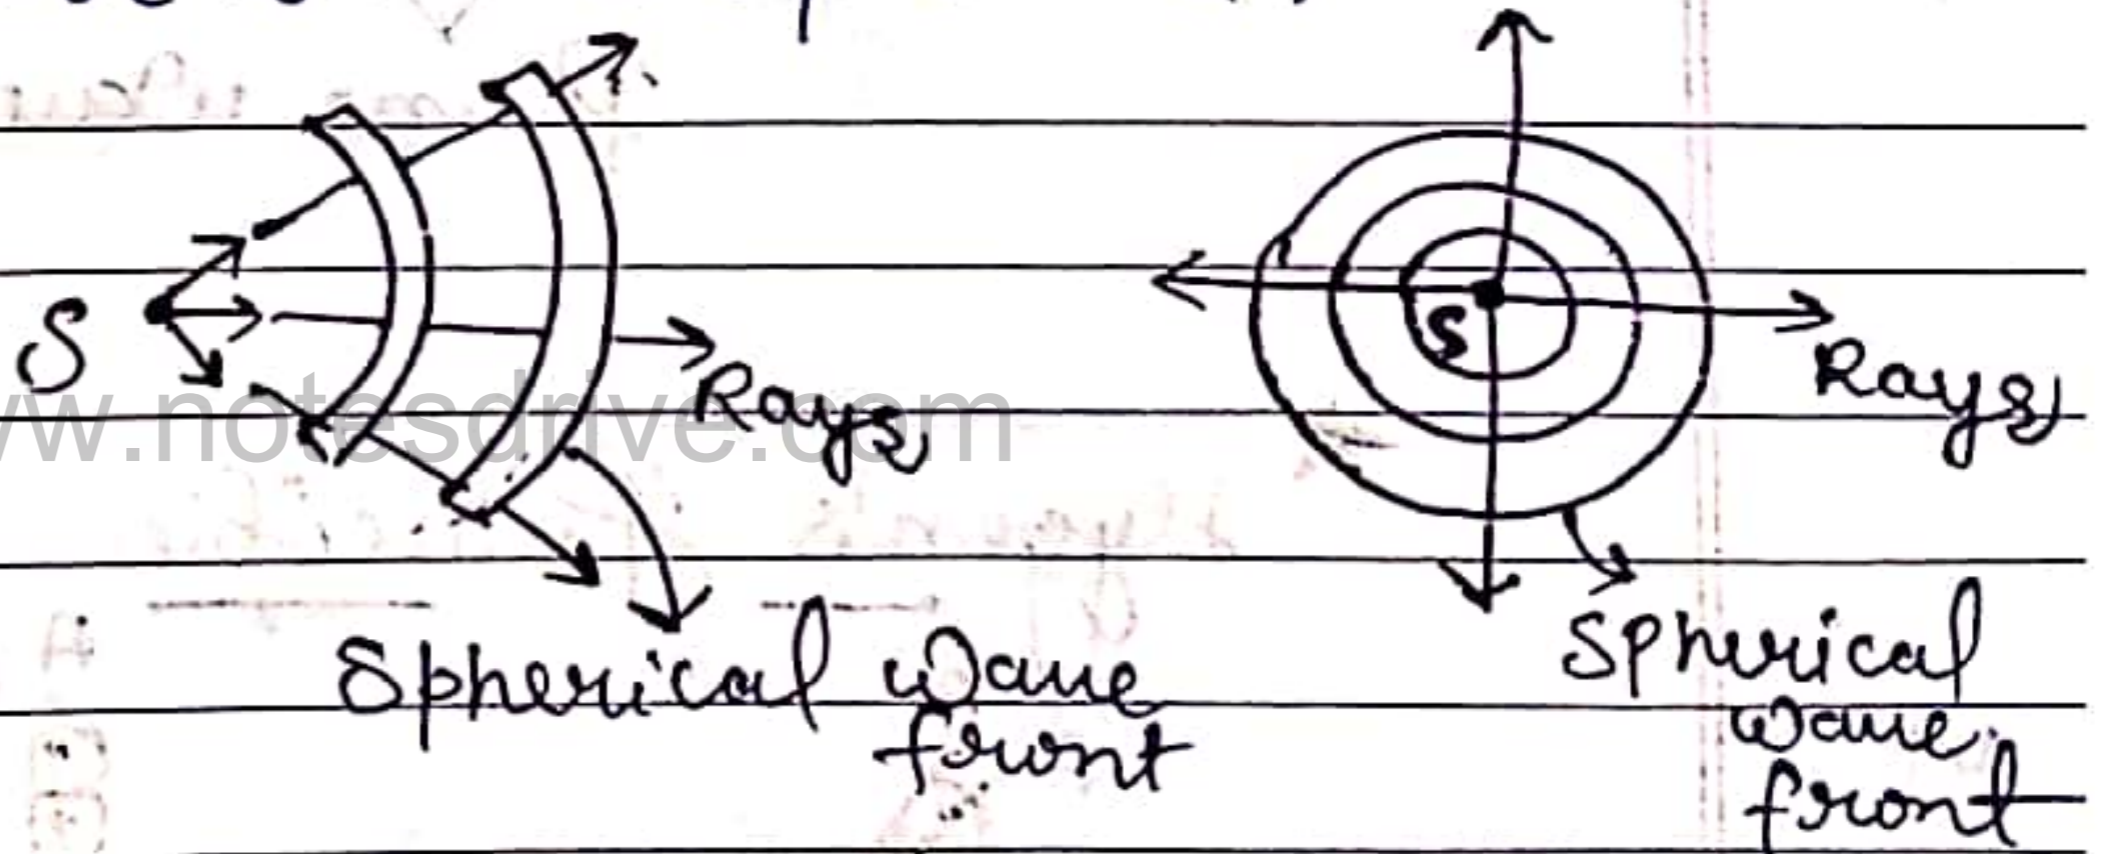 S
Rays
www.notesdrive.com
Spherical wave
front
S
Rays
Spherical
wave
front